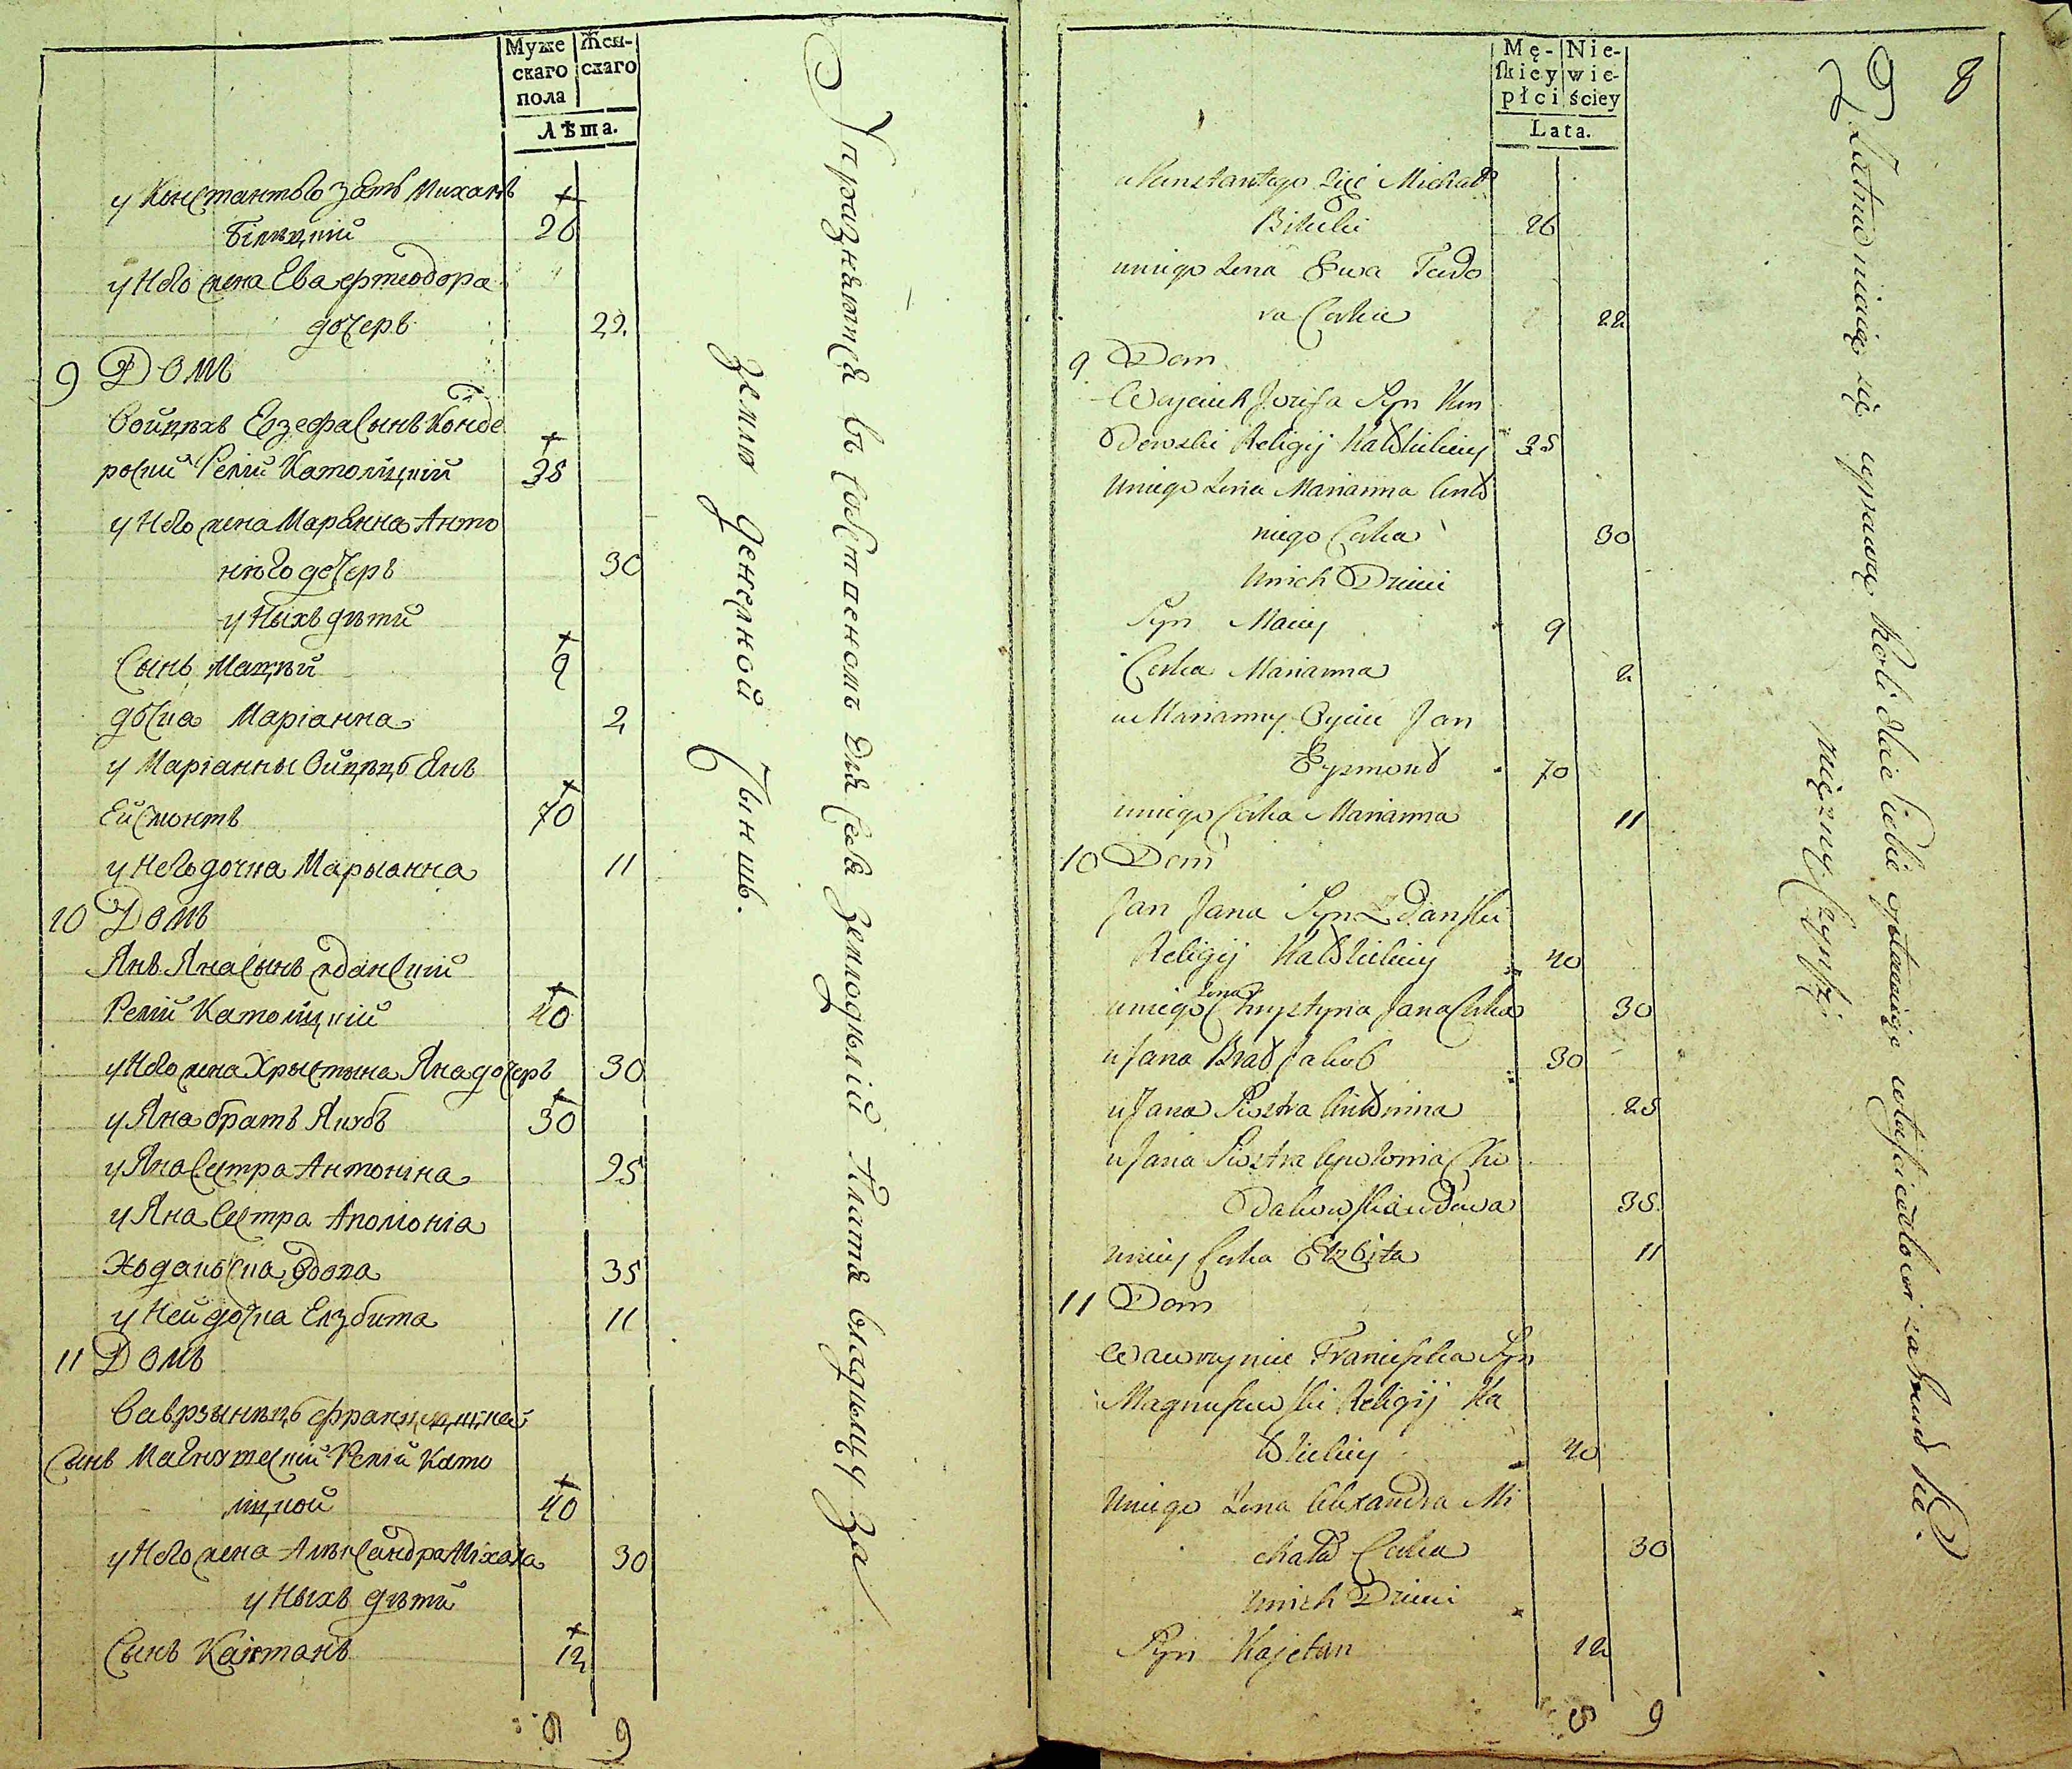 Муже
скаго
пола
Жен-
скаго
Лѣта.
у Константого зять Михалъ
Билецкій
26
у Него жена Ева Ертеодора
дочерь
22.
9 Домъ
Войцехъ Езефа Сынъ Конде
ровскій Релии Католицкій
35
у Него жена Марянна Анто
ніего дочерь
30
у Ныхъ дѣти
Сынъ Мацѣй
9
дочка Маріанна
2
у Маріанны Ойцецъ Янъ
Ейсмонтъ
70
у Него дочка Марыанна
11
10 Домъ
Янъ Яна Сынъ Жданскій
Релии Католицкій
40
у Него жена Хрыстына Яна дочерь
30
у Яна братъ Якубъ
30
у Яна Сестра Антонина
25
у Яна Сестра Аполоніа
Ходаковска вдова
35
у Ней дочка Елзбита
11
11 Домъ
Ваврзынецъ Францишка
Сынъ Магнушескій Релии Като
лицкой
40
у Него жена Александра Міхала
30
у Ныхъ дѣти
Сынъ Каетанъ
12
6 9
Упражняются въ собственомъ для себя земледѣліи платя владѣльцу за
землю денежной Чыншъ.
8
Mę-
skiey
płci
Nie-
wie-
ściey
Lata.
u Konstantego Zięć Michał
Bitulii
26
u niego żona Ewa Teodo
ra Corka
22
9 Dom
Woyciech Jozefa Syn Kon
derowski Religij Katolickiey
35
U niego żona Marianna Anto
niego Corka
30
U nich Dzieci
Syn Maciey
9
Corka Marianna
2
u Marianny Oyciec Jan
Eysmond
70
u niego Corka Marianna
11
10 Dom
Jan Jana Syn Zdanski
Religij Katolickiey
40
u niego żona Chrystyna Jana Corka
30
u Jana Brat Jakob
30
u Jana Siostra Antonina
25
u Jana Siostra Apolonia Cho
dakowska wdowa
35
u niey Corka Elzbita
11
11 Dom
Wawrzyniec Franciszka Syn
Magnuszewski Religij Ka
tolickiey
40
U niego Żona Alexandra Mi
chała Corka
30
U nich Dzieci
Syn Kajetan
12
6 9
Zatrudniaią się uprawą Roli dla siebie opłacaiąc właścicielowi za Grunt
pieniężny Czynsz